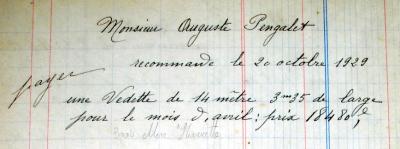 Monsieur Auguste Pengalet
recommande le 20 octobre 1929
payer
une Vedette de 14 mètre 3m35 de large
pour le mois d'avril : prix 18480